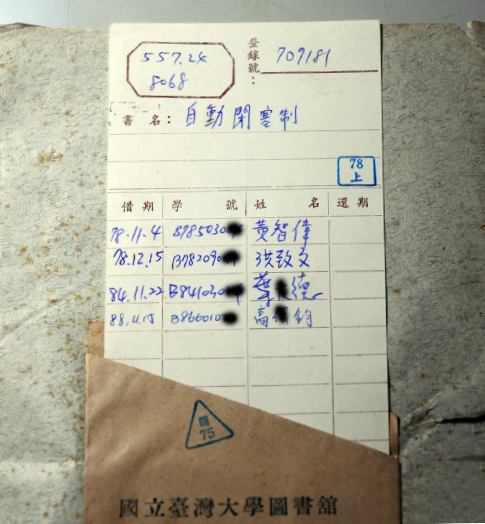 557.24
8068
登錄號: 709181
書名: 自動閉塞制
78
上
借期 學號 姓名 還期
78.11.4 B785030 黃智偉
78.12.15 B78209 洪致文
84.11.22 B841030 華 德
88.4.15 B866010 高 鈞
75
國立臺灣大學圖書館